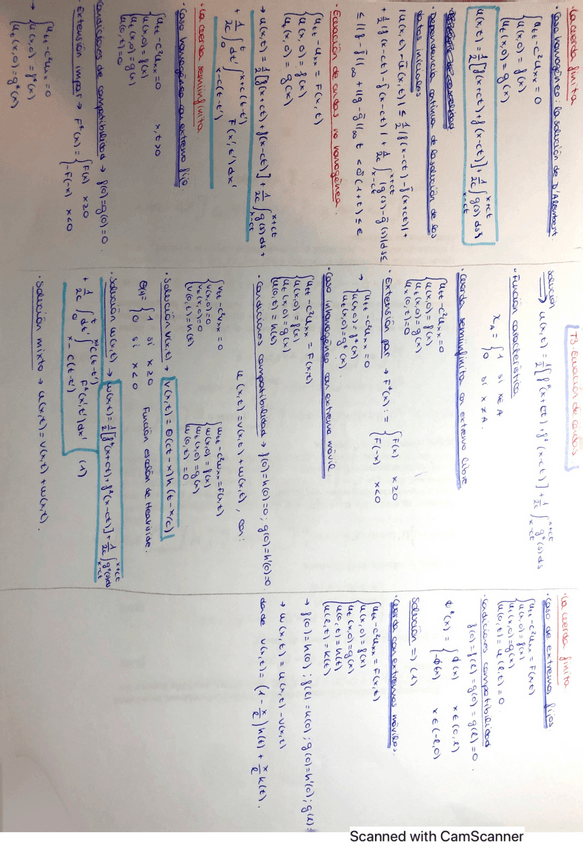 T5 Ecuación de ondas
· La cuerda infinita
· Caso homogéneo: la solución de D'Alembert
{ utt - c²uxx = 0
u(x,0) = f(x)
ut(x,0) = g(x)
u(x,t) = 1/2 [f(x+ct) + f(x-ct)] + 1/2c ∫x-ct^x+ct g(s) ds
Dependencia continua de la solución de los datos iniciales
· Ecuación de ondas no homogénea
{ utt - c²uxx = F(x,t)
u(x,0) = f(x)
ut(x,0) = g(x)
→ u(x,t) = 1/2 [f(x+ct) + f(x-ct)] + 1/2c ∫x-ct^x+ct g(s) ds +
· La cuerda semiinfinita
· Caso homogéneo con extremo fijo
{ utt - c²uxx = 0 x,t>0
u(x,0) = f(x)
ut(x,0) = g(x)
u(0,t) = 0
· Condiciones de compatibilidad → f(0) = g(0) = 0.
· Extensión impar → F*(x) = { F(x) x≥0
-F(-x) x<0
→ { utt - c²uxx = 0
u(x,0) = f*(x)
ut(x,0) = g*(x)
Solución → u(x,t) = 1/2 [f*(x+ct) + f*(x-ct)] + 1/2c ∫x-ct^x+ct g*(s) ds
· Función característica
χA = { 1 si x∈A
0 si x∉A.
· Cuerda semiinfinita con extremo libre
{ utt - c²uxx = 0
u(x,0) = f(x)
ut(x,0) = g(x)
· Extensión par → F*(x) := { F(x) x≥0
F(-x) x<0
→ { utt - c²uxx = 0
u(x,0) = f*(x)
ut(x,0) = g*(x)
· Caso inhomogéneo con extremo móvil
{ utt - c²uxx = F(x,t)
u(x,0) = f(x)
ut(x,0) = g(x)
u(0,t) = h(t)
· Condiciones compatibilidad → f(0) = h(0) = 0; g(0) = h'(0) = 0
u(x,t) = v(x,t) + w(x,t), con:
· Solución v(x,t) → v(x,t) = Θ(ct-x) h(t-x/c)
Θ(x) = { 1 si x≥0
0 si x<0
Función escalón de Heaviside.
· Solución w(x,t) → w(x,t) = 1/2 [f*(x+ct) + f*(x-ct)] + 1/2c ∫x-ct^x+ct g*(s) ds
+ 1/2c ∫0^t dt' ∫x-c(t-t')^x+c(t-t') F*(x',t') dx' (1)
· Solución mixto → u(x,t) = v(x,t) + w(x,t).
· La cuerda finita
· Caso de extremos fijos
{ utt - c²uxx = F(x,t)
u(x,0) = f(x)
ut(x,0) = g(x)
u(0,t) = u(l,t) = 0
· Condiciones compatibilidad
f(0) = f(l) = g(0) = g(l) = 0.
Solución ⇒ (1)
· Cuerda con extremos móviles.
{ utt - c²uxx = F(x,t)
u(x,0) = f(x)
ut(x,0) = g(x)
u(0,t) = h(t)
u(l,t) = k(t)
→ f(0) = h(0); f(l) = k(0); g(0) = h'(0); g(l) =
→ w(x,t) = u(x,t) - v(x,t)
donde v(x,t) = (1 - x/l) h(t) + x/l k(t).
Scanned with CamScanner